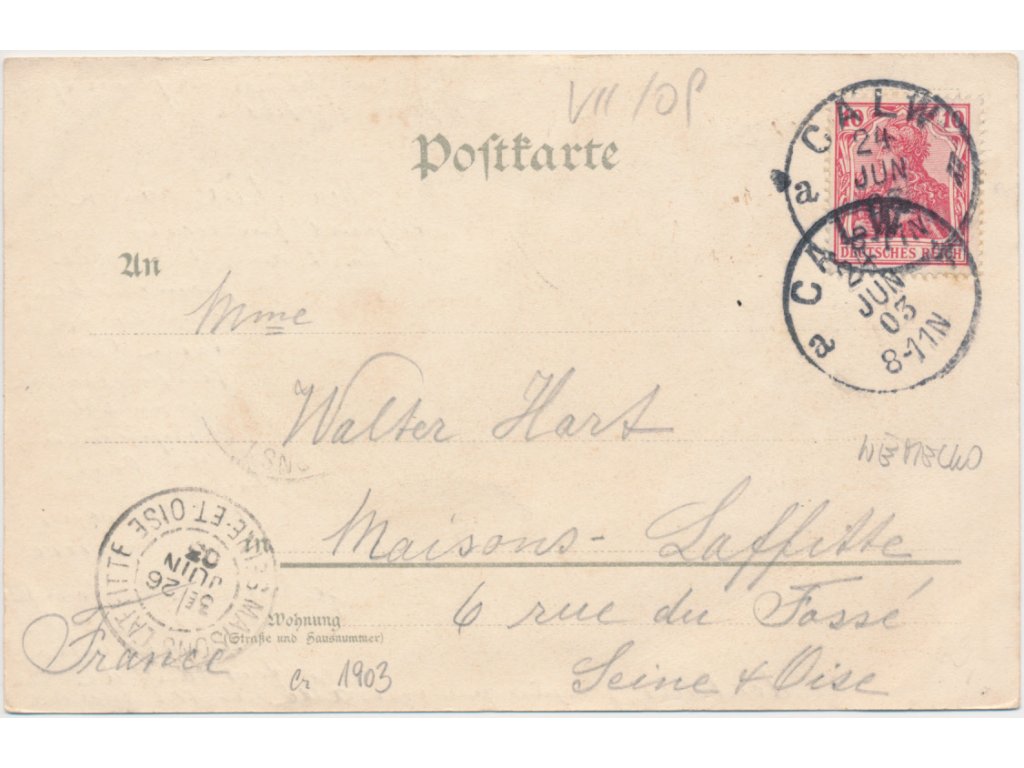 VII/08
Postkarte
10 10
DEUTSCHES REICH
CALW
24
JUN
a
CALW
24
JUN
03
8-11N
a
An
Mme
Walter Hart
NĚMECKO
Maisons-Laffitte
6 rue du Fossé
Seine & Oise
France
MAISONS LAFFITTE
ET-OISE
3E/26
JUIN
03
Wohnung
(Straße und Hausnummer)
cr 1903